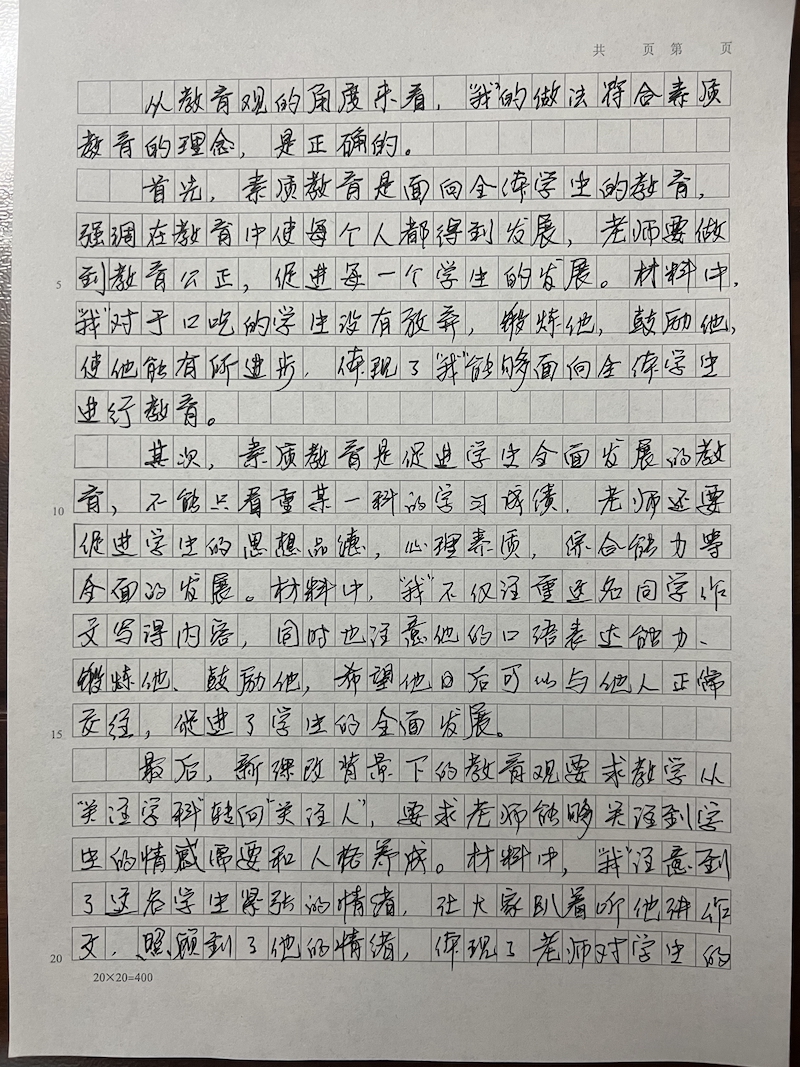 共 页 第 页
从教育观的角度来看，“我”的做法符合素质
教育的理念，是正确的。
首先，素质教育是面向全体学生的教育，
强调在教育中使每个人都得到发展，老师要做
5 到教育公正，促进每一个学生的发展。材料中，
“我”对于口吃的学生没有放弃，锻炼他，鼓励他，
使他能有所进步，体现了“我”能够面向全体学生
进行教育。
其次，素质教育是促进学生全面发展的教
10 育，不能只看重某一科的学习成绩，老师还要
促进学生的思想品德，心理素质，综合能力等
全面的发展。材料中，“我”不仅注重这名同学作
文写得内容，同时也注意他的口语表达能力、
锻炼他、鼓励他，希望他日后可以与他人正常
15 交往，促进了学生的全面发展。
最后，新课改背景下的教育观要求教学从
“关注学科”转向“关注人”，要求老师能够关注到学
生的情感需要和人格养成。材料中，“我”注意到
了这名学生紧张的情绪，让大家趴着听他讲作
20 文，照顾到了他的情绪，体现了老师对学生的
20×20=400